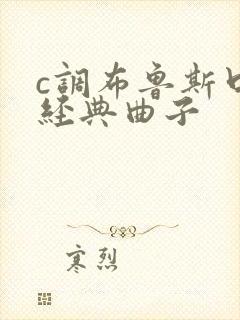 c調布魯斯口
經典曲子
寒烈